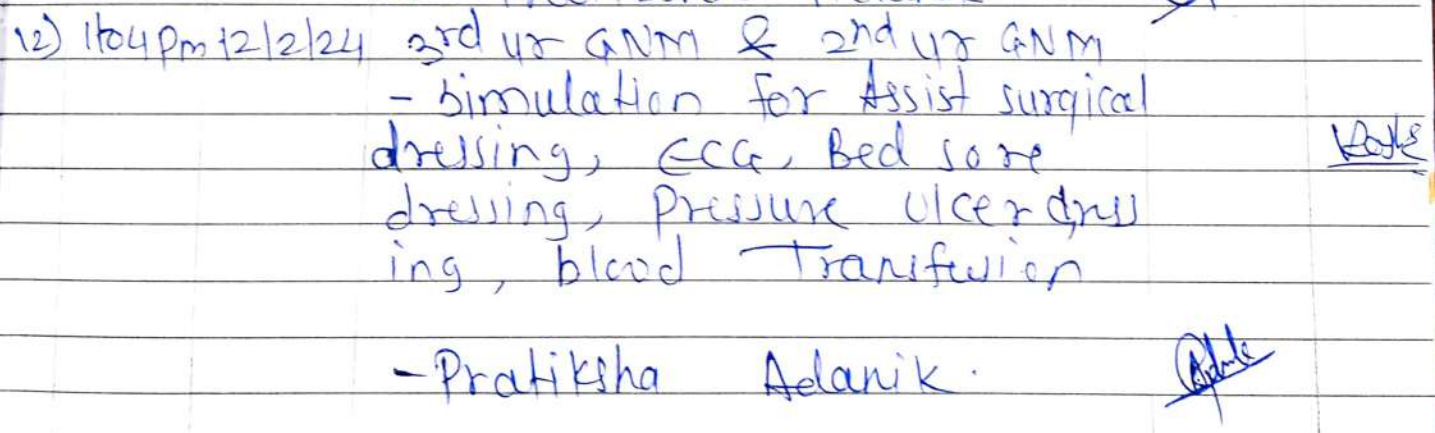 12) 1to4pm 12/2/24 3rd yr GNM & 2nd yr GNM
- Simulation for Assist surgical
dressing, ECG, Bed sore
dressing, Pressure Ulcer dress
ing, blood Transfusion
- Pratiksha Adanik.